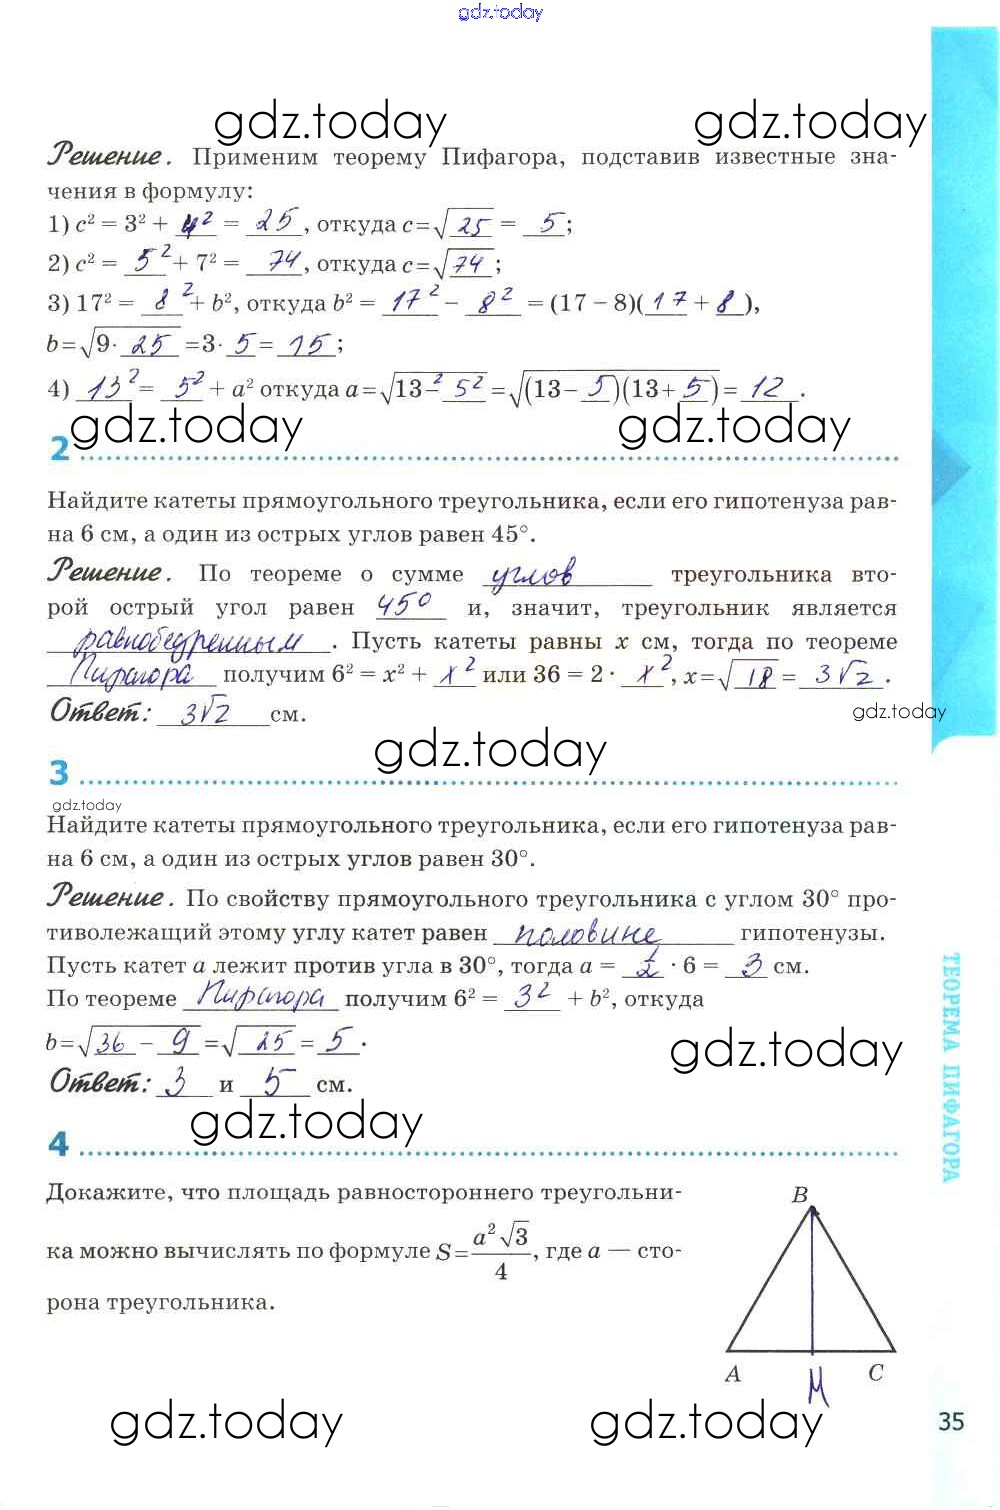 gdz.today
gdz.today gdz.today
Решение. Применим теорему Пифагора, подставив известные зна-
чения в формулу:
1) c² = 3² + 4² = 25, откуда c=√25 = 5;
2) c² = 5² + 7² = 74, откуда c=√74;
3) 17² = 8² + b², откуда b² = 17² − 8² = (17 − 8)(17 + 8),
b=√9· 25 =3· 5 = 15;
4) 13² = 5² + a² откуда a=√13²− 5² =√(13− 5)(13+ 5) = 12.
gdz.today gdz.today
2
Найдите катеты прямоугольного треугольника, если его гипотенуза рав-
на 6 см, а один из острых углов равен 45°.
Решение. По теореме о сумме углов треугольника вто-
рой острый угол равен 45° и, значит, треугольник является
равнобедренным. Пусть катеты равны x см, тогда по теореме
Пифагора получим 6² = x² + x² или 36 = 2 · x², x=√18 = 3√2.
Ответ: 3√2 см.
gdz.today
gdz.today
3
gdz.today
Найдите катеты прямоугольного треугольника, если его гипотенуза рав-
на 6 см, а один из острых углов равен 30°.
Решение. По свойству прямоугольного треугольника с углом 30° про-
тиволежащий этому углу катет равен половине гипотенузы.
Пусть катет a лежит против угла в 30°, тогда a = ½ · 6 = 3 см.
По теореме Пифагора получим 6² = 3² + b², откуда
b=√36 − 9 =√25 = 5.
gdz.today
Ответ: 3 и 5 см.
gdz.today
4
Докажите, что площадь равностороннего треугольни-
ка можно вычислять по формуле S=a²√3/4, где a — сто-
рона треугольника.
B
A M C
gdz.today gdz.today
ТЕОРЕМА ПИФАГОРА
35